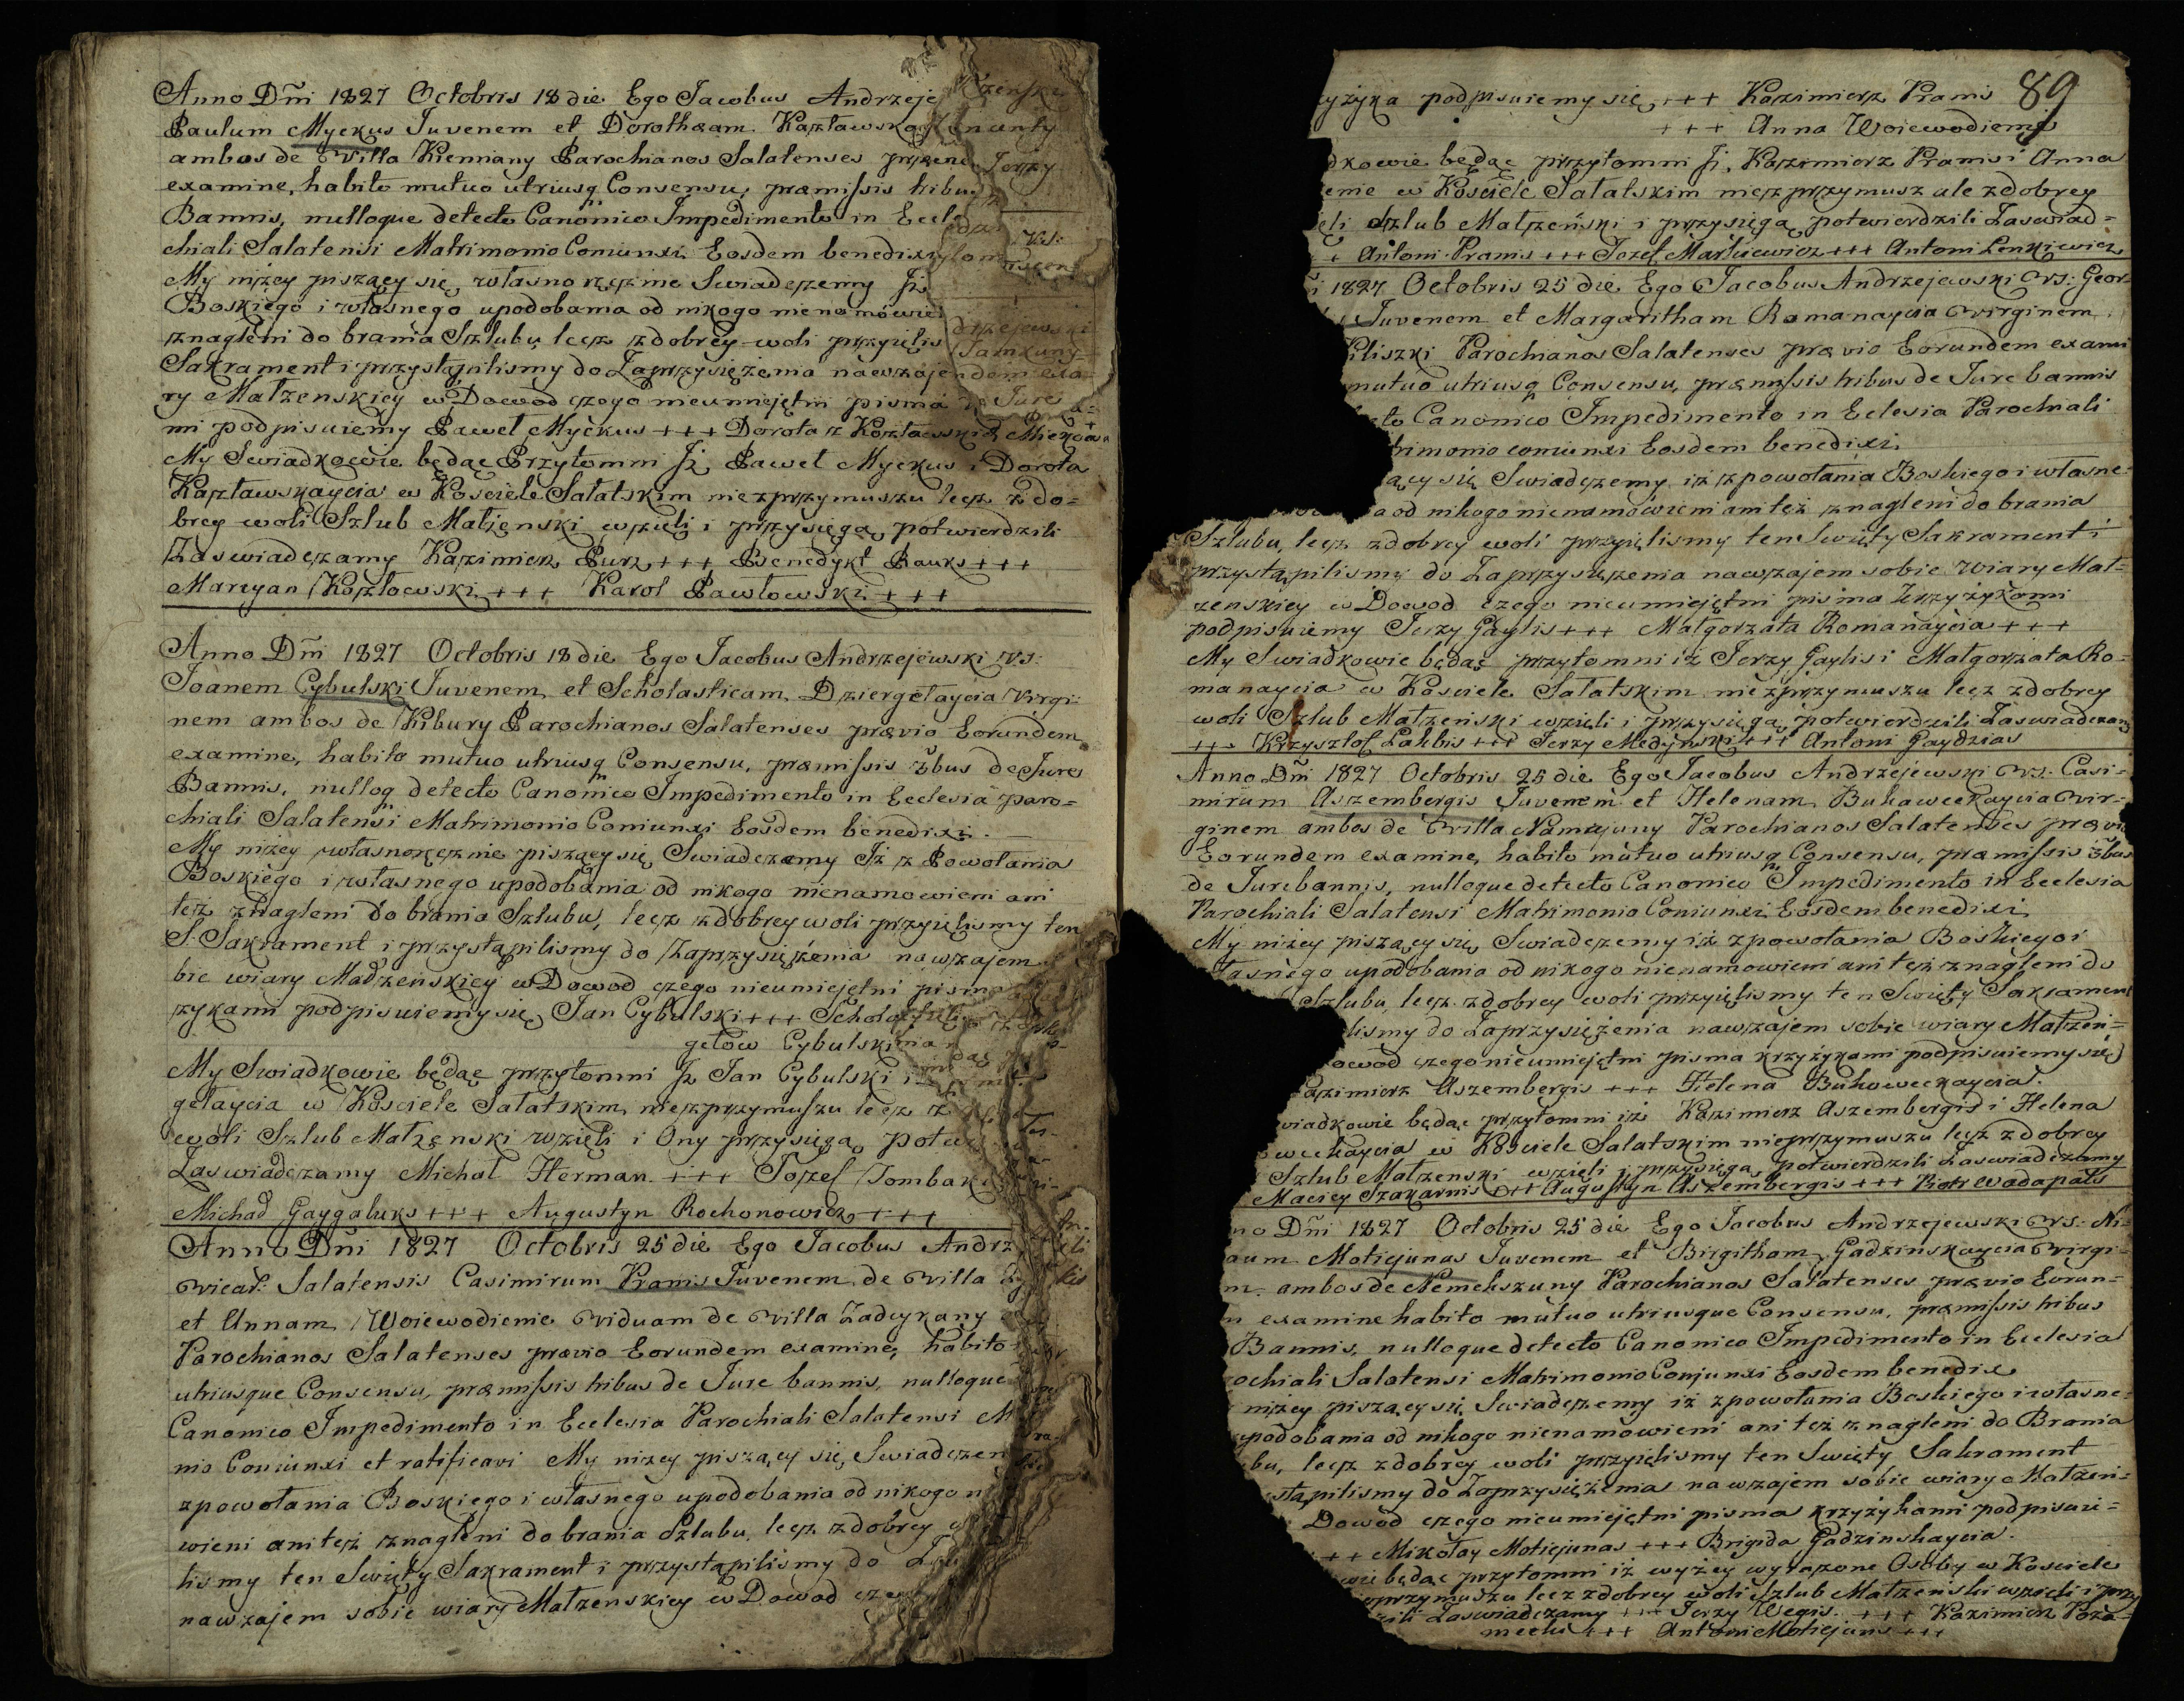 Anno Dñi 1827 Octobris 18 die Ego Jacobus Andrzeje
Paulum Myckus Juvenem et Dorotheam Kazławska
ambos de Villa Kiemiany Parochianos Salatenses præ
examine, habito mutuo utriusq Consensu, præmissis tribus
Bannis, nulloque detecto Canonico Impedimento in Eccle
chiali Salatensi Matrimonio Coniunxi Eosdem benedixi
My niżey piszący się własnoręcznie Swiadczemy Jż
Boskiego i własnego upodobania od nikogo nienamowie
znagleni do brania Szlubu lecz zdobrey woli przyieliś
Sakrament i przystąpilismy do Zaprzysiężenia nawzaje
ry Małzenskiey w Dowod czego nieumiejętni pisma
mi podpisuiemy Paweł Myckus +++ Dorota z Kozłowskich
My Swiadkowie będąc Przytomni Jż Paweł Myckus i Dorota
Kazławskaycia w Kościele Sałatskim niezprzymuszu lecz zdo=
brey woli Szlub Małżenski wzieli i przysięgą potwierdzili
Zaswiadczamy Kazimierz Purz +++ Benedykt Rauks +++
Marcyan Kozłowski +++ Karol Pawłowski +++
Anno Dñi 1827 Octobris 18 die Ego Jacobus Andrzejewski V.S:
Joanem Cybulski Juvenem et Scholasticam Dziergełaycia Virgi
nem ambos de Kibury Parochianos Salatenses prævio Eorundem
examine, habito mutuo utriusq Consensu, præmissis 3bus de Jure
Bannis, nulloq detecto Canonico Impedimento in Ecclesia paro=
chiali Salatensi Matrimonio Coniunxi Eosdem benedixi.
My niżey własnoręcznie piszący się Swiadczemy Jż z Powołania
Boskiego i własnego upodobania od nikogo nienamowieni ani
też znagleni do brania Szlubu, lecz zdobrey woli przyielismy ten
S. Sakrament i przystąpilismy do Zaprzysiężenia nawzajem
bie wiary Madżenskiey w Dowod czego nieumiejętni pisma
zykami podpisuiemy się Jan Cybulski +++ Schola
gełow Cybulski
My Swiadkowie będąc przytomni Jż Jan Cybulski i
gełaycia w Kościele Sałatskim niezprzymuszu lecz z
woli Szlub Małzenski wzieli i Ony przysięgą potw
Zaswiadczamy Michał Herman +++ Jozef Jombak
Michał Gaygaluks +++ Augustyn Rochonowicz +++
Anno Dñi 1827 Octobris 25 die Ego Jacobus Andrz
Vicar: Salatensis Casimirum Pramis Juvenem de Villa
et Annam Woiewodienie Viduam de Villa Zadeykany
Parochianos Salatenses prævio Eorundem examine, habito
utriusque Consensu, præmissis tribus de Jure bannis, nulloque
Canonico Impedimento in Ecclesia Parochiali Salatensi M
nio Coniunxi et ratificavi My niżey piszący się Swiadczem
zpowołania Boskiego i własnego upodobania od nikogo n
wieni ani też znagleni do brania Szlubu, lecz zdobrey
lismy ten Swięty Sakrament i przystąpilismy do Za
nawzajem sobie wiary Małzenskiey w Dowod cze
89
zyżyka podpisuiemy się +++ Kazimierz Pramis
+++ Anna Woiewodieme
dkowie będąc przytomni Jż Kazimierz Pramis i Anna
enie w Kościele Sałatskim niez przymusz ale zdobrey
eli Szlub Małzeński i przysięgą potwierdzili Zaswiad=
+ Antoni Pramis +++ Jozef Markiewicz +++ Antoni Lenkiewicz
1827 Octobris 25 die Ego Jacobus Andrzejewski V.S: Geor
Juvenem et Margaritham Romanaycia Virginem
Kiliszki Parochianos Salatenses prævio Eorundem exami
mutuo utriusq Consensu, præmissis tribus de Jure bannis
cto Canonico Impedimento in Eclesia Parochiali
trimonio coniunxi Eosdem benedixi
ący się Swiadczemy iż zpowołania Boskiego i własne
a od nikogo nienamówieni ani też znagleni do brania
Szlubu, lecz zdobrey woli przyielismy ten Swięty Sakrament i
przystąpilismy do Zaprzysiężenia nawzajem sobie wiary Mał=
zenskiey w Dowod czego nieumiejętni pisma krzyżykami
podpisuiemy Jerzy Gaylis +++ Małgorzata Romanaycia +++
My Swiadkowie będąc przytomni iż Jerzy Gaylis i Małgorzata Ro=
manaycia w Kościele Sałatskim niezprzymuszu lecz zdobrey
woli Szlub Małzeński wzięli i przysięgą potwierdzili Zaswiadczamy
+++ Krzysztof Lakbis +++ Jerzy Medyński +++ Antoni Gaydzias
Anno Dñi 1827 Octobris 25 die Ego Jacobus Andrzejewski V.S: Casi=
mirum Aszembergis Juvenem et Helenam Bukaweckaycia Vir=
ginem ambos de Villa Namejuny Parochianos Salatenses prævi
Eorundem examine, habito mutuo utriusq Consensu, præmissis 3bus
de Jure bannis, nulloque detecto Canonico Impedimento in Ecclesia
Parochiali Salatensi Matrimonio Coniunxi Eosdem benedixi
My niżey piszący się Swiadczemy iż zpowołania Boskiego i
łasnego upodobania od nikogo nienamowieni ani też znagleni do
Szlubu, lecz zdobrey woli przyielismy ten Swięty Sakrament
lismy do Zaprzysiężenia nawzajem sobie wiary Małzeń=
owod czego nieumiejętni pisma krzyżykami podpisuiemy się
azimierz Aszembergis +++ Helena Bukoweckaycia.
wiadkowie będąc przytomni iż Kazimierz Aszembergis i Helena
weckaycia w Kościele Sałatskim nieprzymuszu lecz zdobrey
Szlub Małzenski wzieli i przysięgą potwierdzili Zaswiadczamy
Maciey Szakarnis +++ Augustyn Aszembergis +++ Piotr Wadapals
no Dñi 1827 Octobris 25 die Ego Jacobus Andrzejewski V.S: Ni=
aum Motiejunas Juvenem et Birgitham Gadzinskaycia Virgi=
m ambos de Nemekszuny Parochianos Salatenses prævio Eorun=
examine habito mutuo utriusque Consensu, præmissis tribus
Bannis, nulloque detecto Canonico Impedimento in Ecclesia
ochiali Salatensi Matrimonio Conjunxi Eosdem benedixi
niżey piszący się Swiadczemy iż zpowołania Boskiego i własne
podobania od nikogo nienamowieni ani też znagleni do Brania
bu, lecz zdobrey woli przyielismy ten Swięty Sakrament
stąpilismy do Zaprzysiężenia nawzajem sobie wiary Małzeń=
Dowod czego nieumiejętni pisma krzyżykami podpisui=
++ Mikołay Motiejunas +++ Brigida Gadzinskaycia.
wie będąc przytomni iż wyżey wyrażone Osoby w Kościele
przymuszu lecz zdobrey woli Szlub Małzeński wzieli i przy
zili Zaswiadczamy +++ Jerzy Wegis. +++ Kazimierz Poża=
mecki +++ Antoni Motiejuns +++